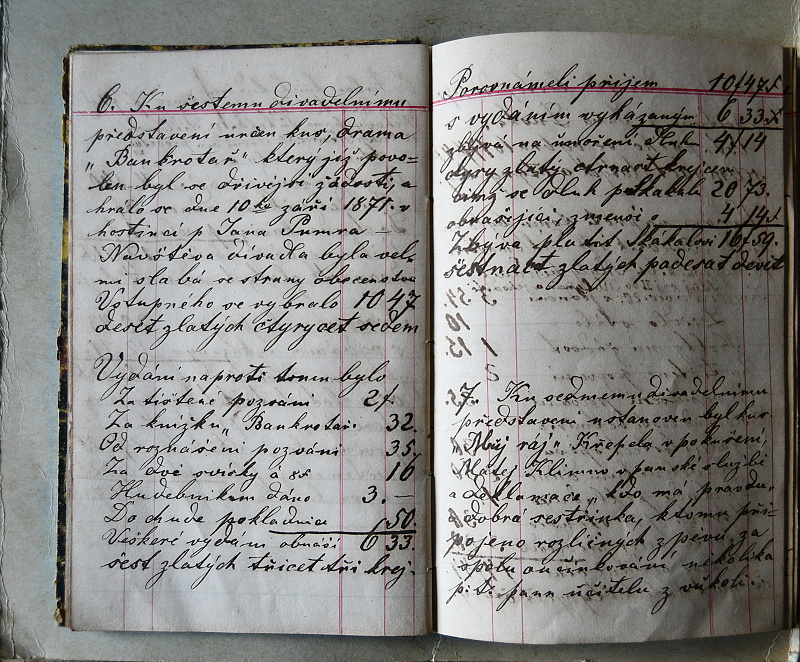 6. Ku šestemu divadelnímu
představení určen kus, drama
„Bankrotář" který již povo-
len byl se dřívější žádostí, a
hrálo se dne 10ho září 1871. v
hostinci p Jana
Navštěva divadla byla vel-
mi slabá se strany obecenstva
Vstupného se vybralo 10 47
deset zlatých čtyrycet sedem
Vydání naproti tomu bylo
Za tištěné pozvání 2f
Za knížku „Bankrotář. 32.
Od roznášení pozvání 35,
Za dvě svíčky á 8x 16
Hudebníkum dáno 3. —
Do chude pokladnice 50.
Veškeré vydání obnáší 6 33.
šest zlatých třicet tři krej.
Porovnámeli příjem 10f47x
s vydáním vykázaným 6 33x
zbývá na umoření dluhu 4f14
čtyry zlaty čtrnact krejcaru
se dluh 20 73.
obnášející, zmenší o 4 14x
Zbývá platit Skákalovi 16f59.
šestnáct zlatých padesat devět
7. Ku sedmemu divadelnímu
představení ustanoven byl kus
„Můj ráj" Křepela v pokušení,
Matěj Klimum v panské službě
a deklamace „kdo má pravdu"
dobrá sestřinka, k tomu při-
pojeno rozličných zpěvu za
spolu anučinkování několika
p. t. pann učitelu z vukolí.